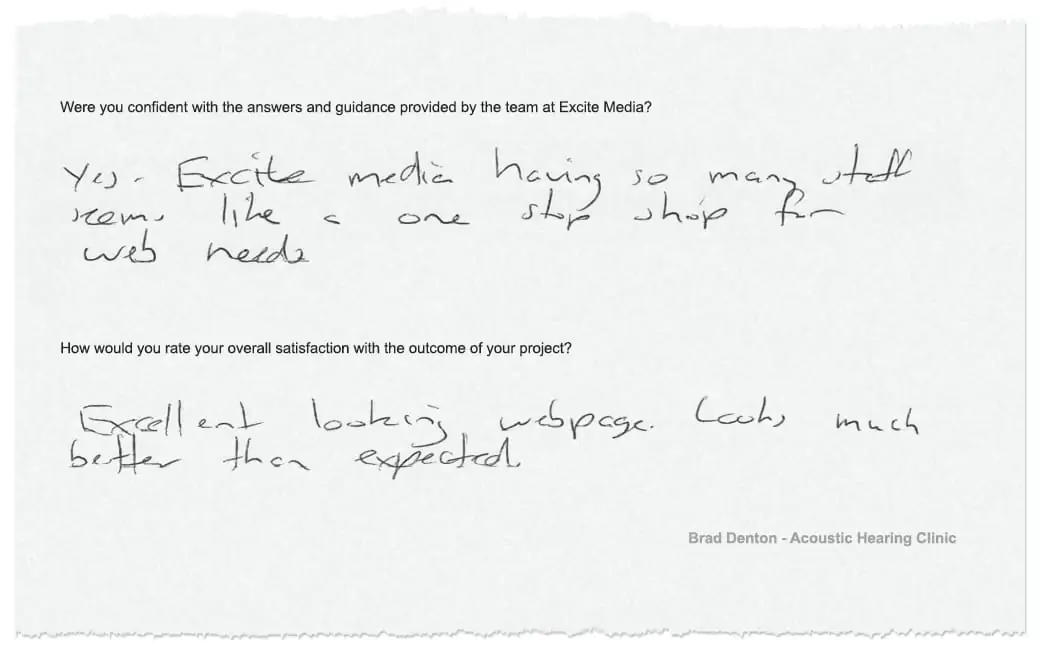 Were you confident with the answers and guidance provided by the team at Excite Media?
Yes. Excite media having so many staff
seems like a one stop shop for
web needs
How would you rate your overall satisfaction with the outcome of your project?
Excellent looking webpage. Looks much
better than expected.
Brad Denton - Acoustic Hearing Clinic